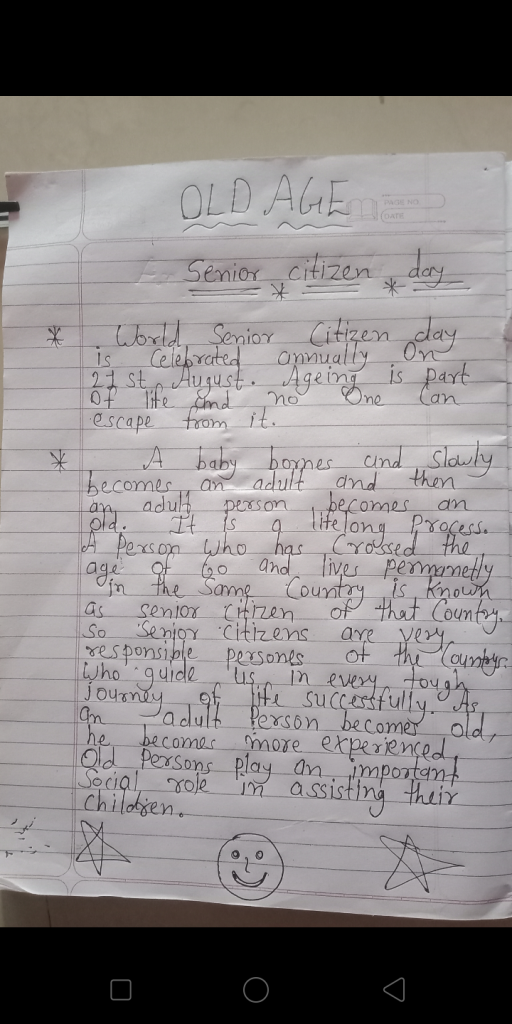 OLD AGE
PAGE NO.
DATE
Senior citizen day
* World Senior Citizen day
is Celebrated annually On
21 st August. Ageing is part
Of life and no One Can
escape from it.
* A baby bornes and slowly
becomes an adult and then
an adult person becomes an
old. It is a lifelong Process.
A Person Who has Crossed the
age of 60 and lives permanetly
in the Same Country is Known
as senior citizen of that Country.
So Senior Citizens are very
responsible persones of the Country.
Who guide us in every tough
journey of life successfully. As
an adult Person becomes old,
he becomes more experienced
Old Persons play an important
Social role in assisting their
Children.